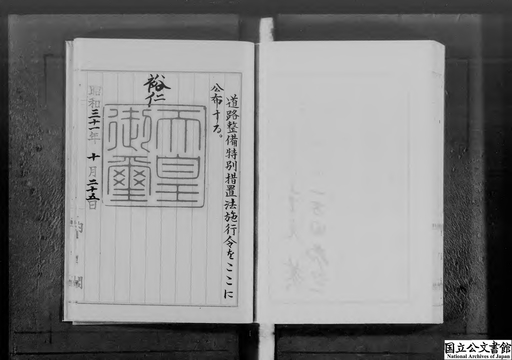 道路整備特別措置法施行令をここに
公布する。
裕仁
天皇御璽
昭和三十一年十月二十五日
国立公文書館
National Archives of Japan